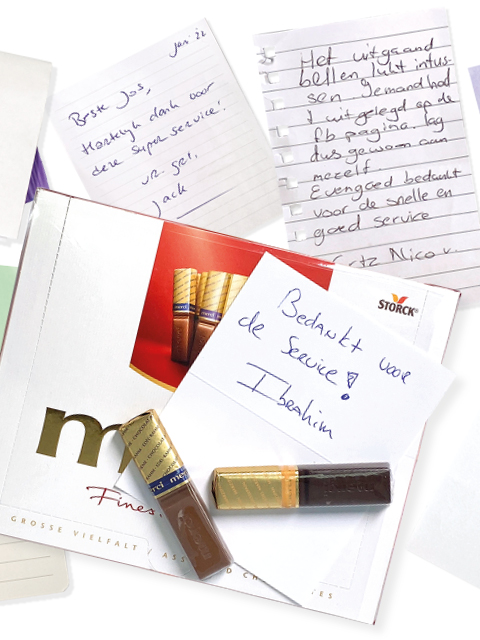 Jan '22
Beste Jos,
Hartelijk dank voor
deze super service!
vr. gr.,
Jack
Het uitgaand
bellen lukt intus-
sen. Iemand had
't uitgelegd op de
fb pagina. lag
dus gewoon aan
mezelf
Evengoed bedankt
voor de snelle en
goed service
Grtz Nico v.
STORCK®
Bedankt voor
de service!
Ibrahim
m
Fines
GROSSE VIELFALT / ASS D CH
merci
rci mer